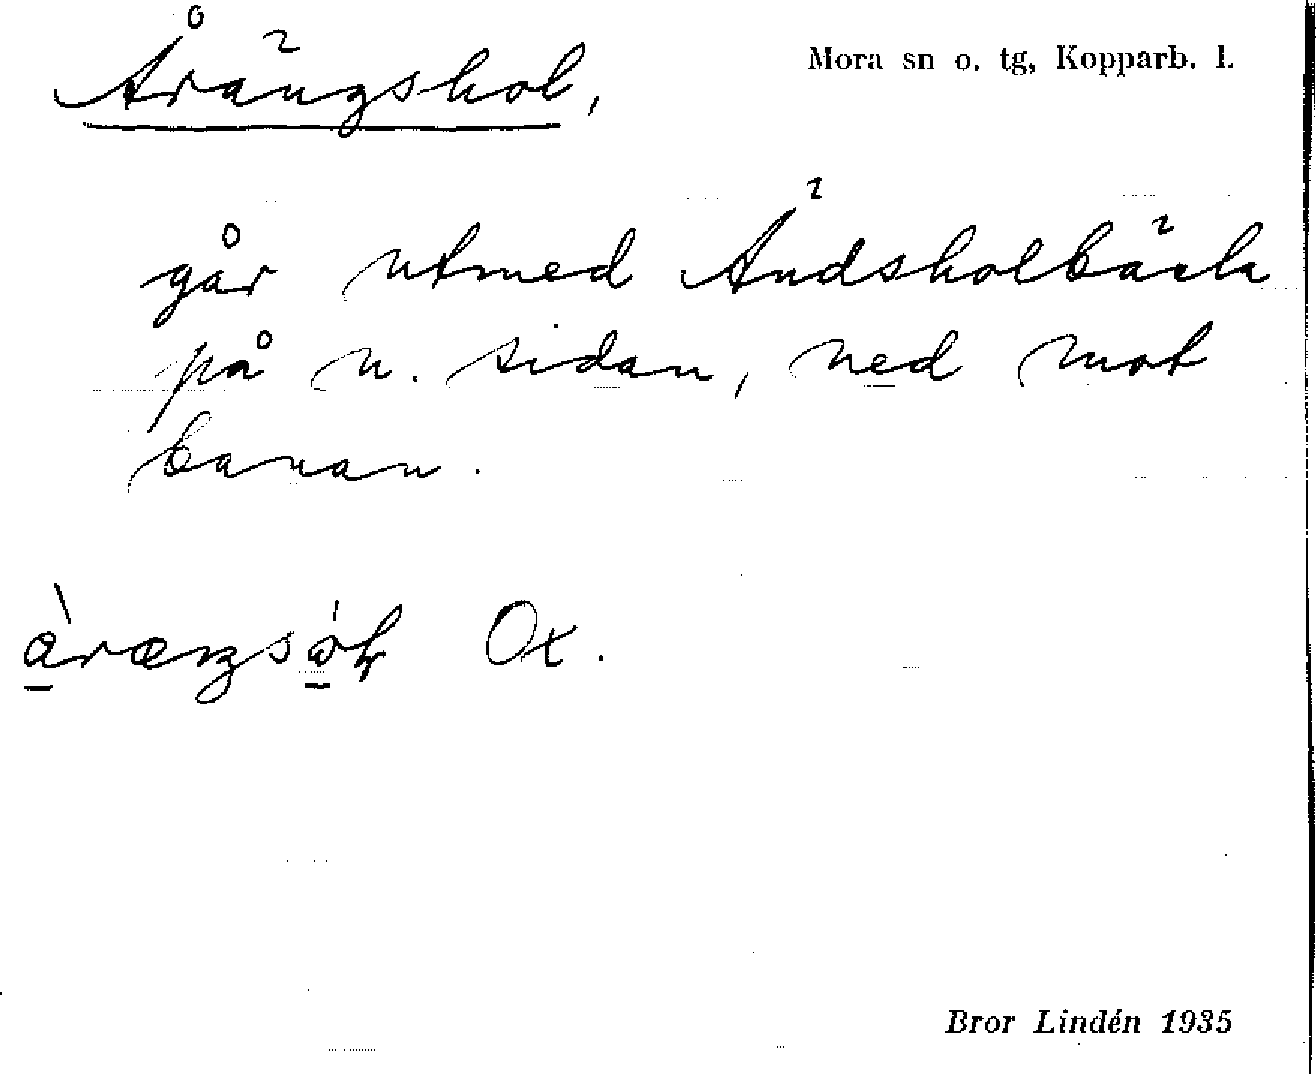 Årängshol,
Mora sn o. tg, Kopparb. l.
går utmed Ändsholbäck
på n. sidan, ned mot
banan.
Ox.
Bror Lindén 1935